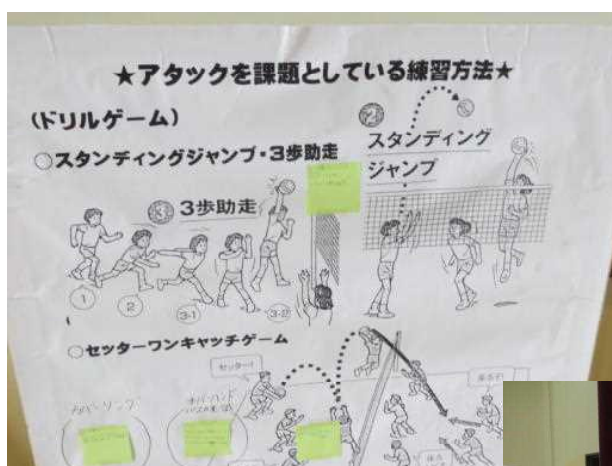 ★アタックを課題としている練習方法★
(ドリルゲーム)
○スタンディングジャンプ・3歩助走
②
スタンディング
ジャンプ
③ 3歩助走
1
2
3-1
3-2
○セッターワンキャッチゲーム
セッター!